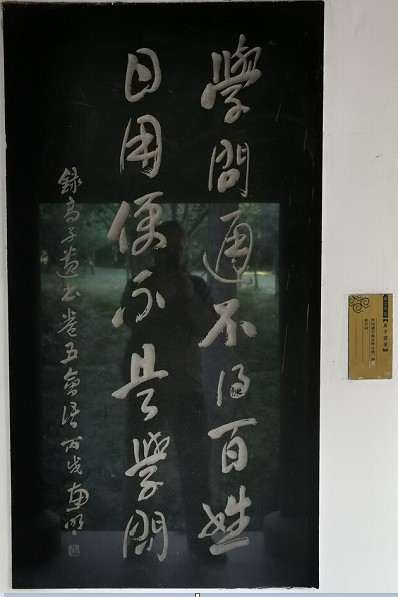 學問通不得百姓
日用便不是學問
錄高子遺書卷五會語丙戌